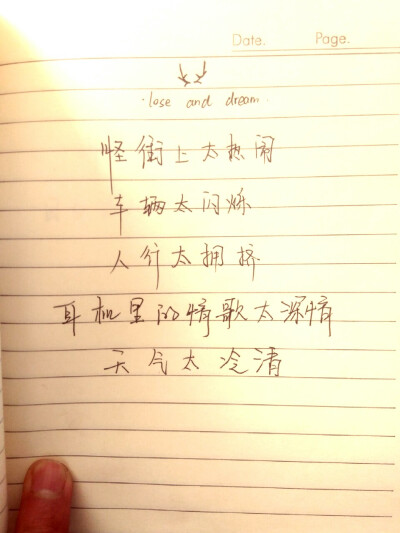 Date. Page.
lose and dream.
怪街上太热闹
车辆太闪烁
人行太拥挤
耳机里的情歌太深情
天气太冷清